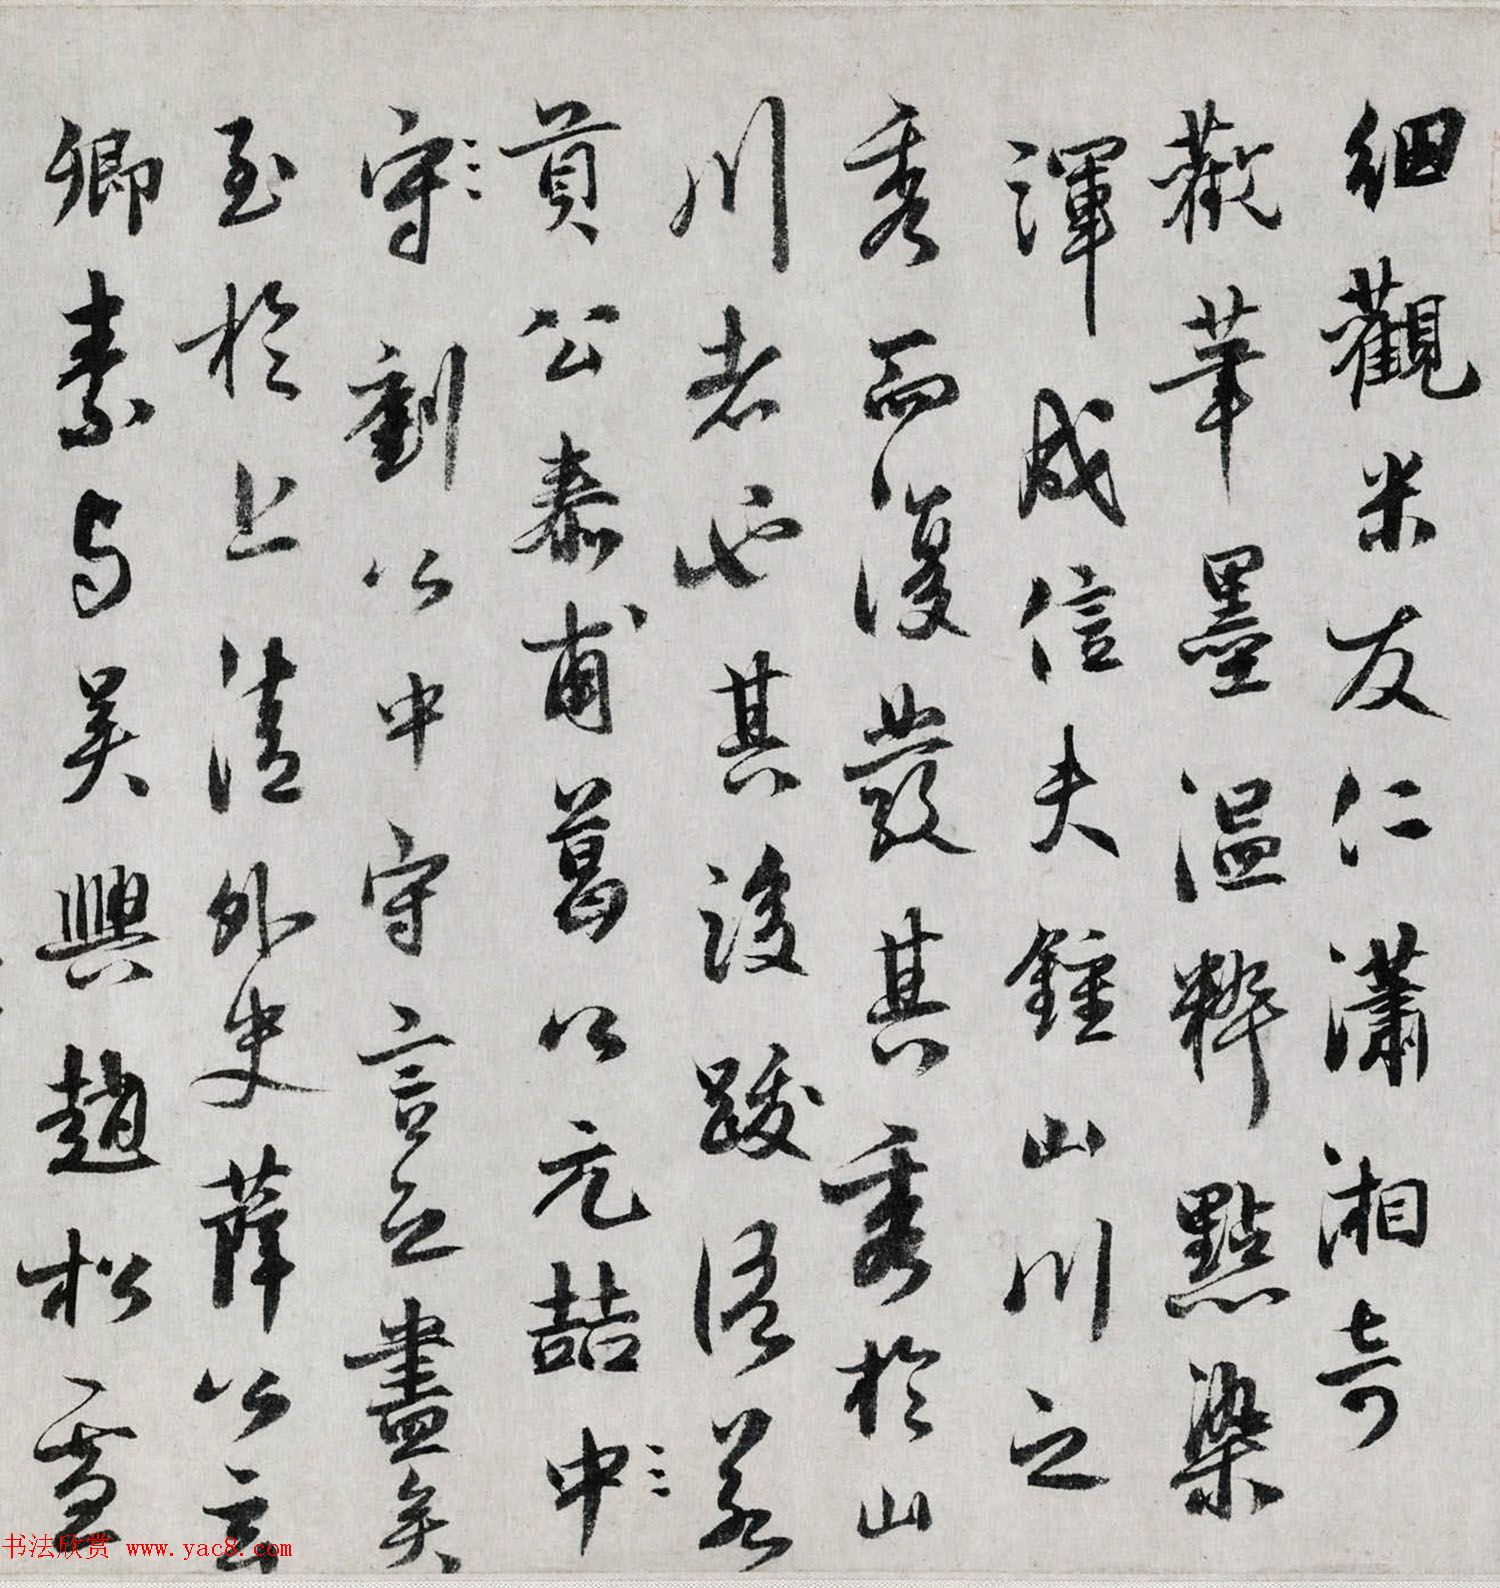 細觀米友仁瀟湘奇
觀筆墨溫粹點染
渾成信夫鍾山川之
秀而復發其秀於山
川者也其後跋語若
貢公泰甫葛公元喆中
守劉公中守言之盡矣
至於上清外史薛公玄
卿素与吴興趙松雪
书法欣赏 www.yac8.com